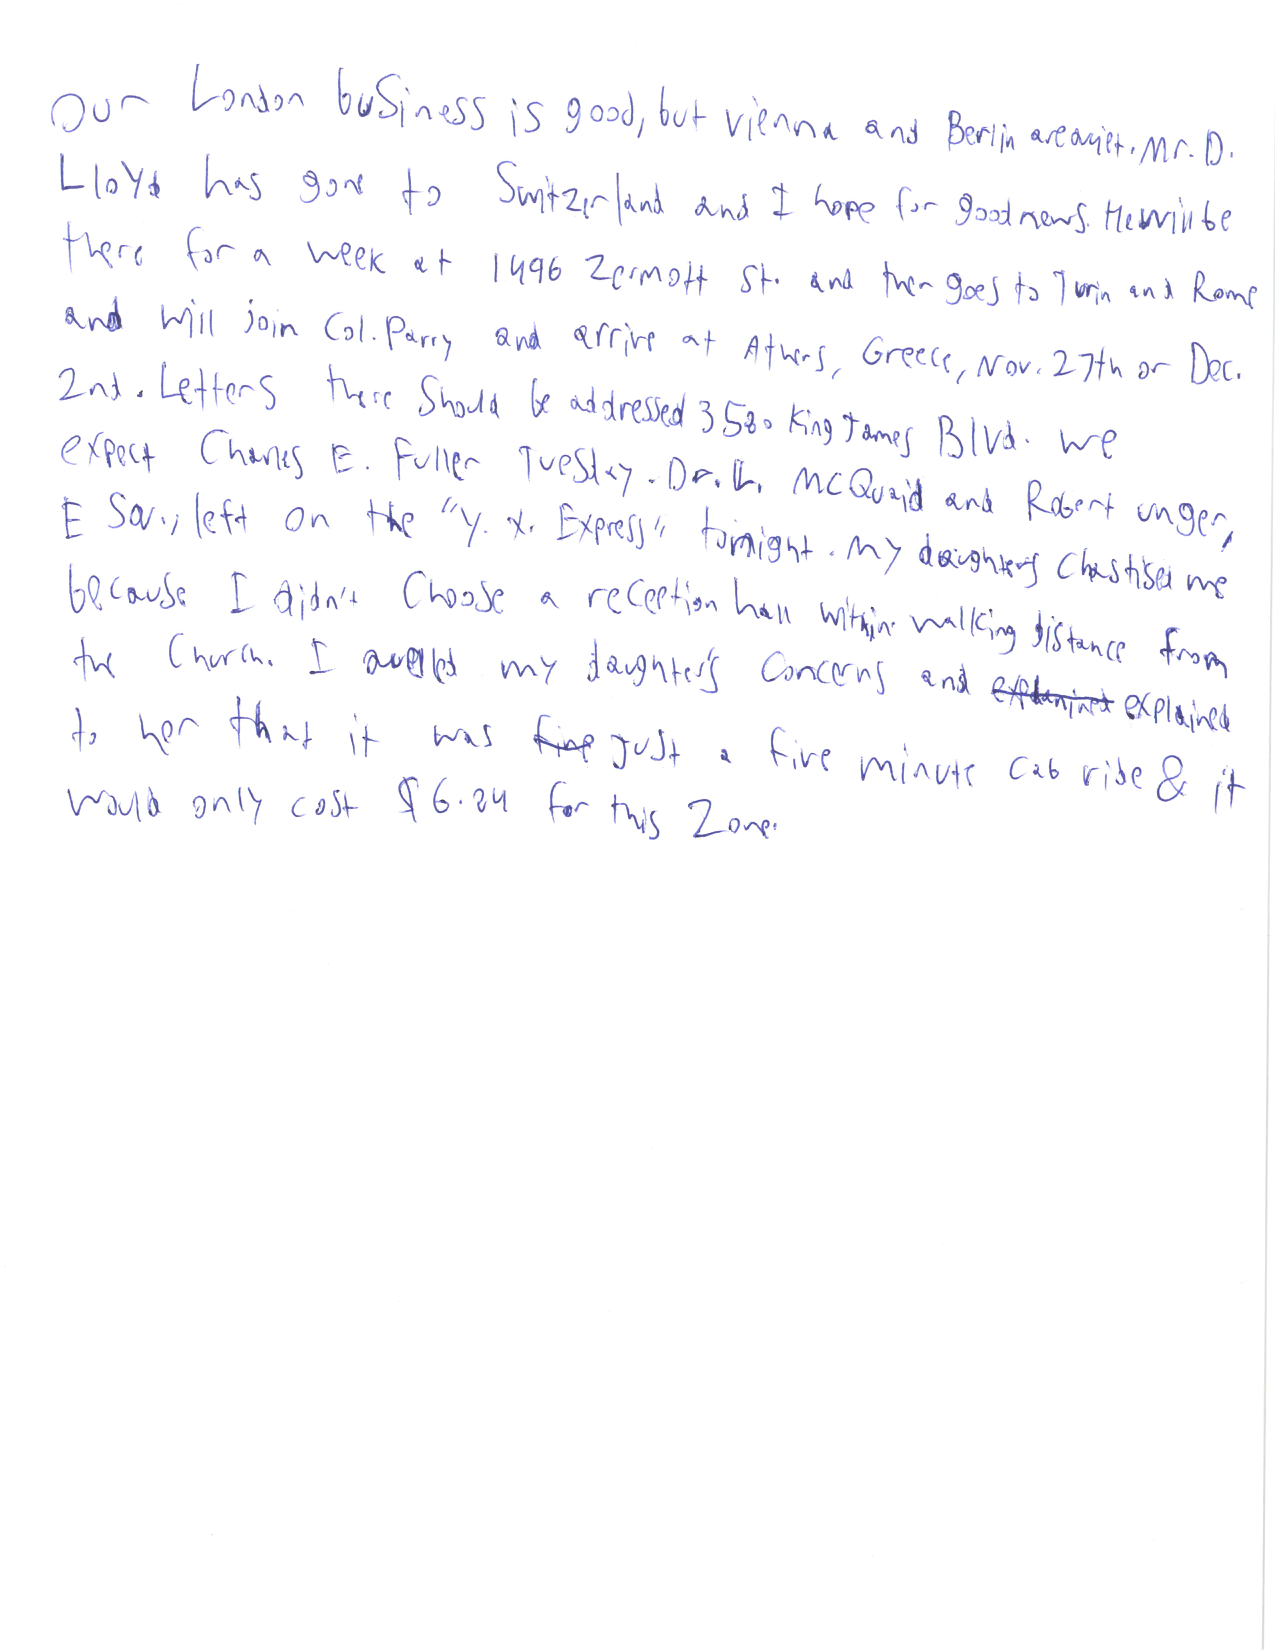 Our London business is good, but vienna and Berlin are quiet. Mr. D.
Lloyd has gone to Switzerland and I hope for good news. He will be
there for a week at 1496 Zermott St. and then goes to Turin and Rome
and will join Col. Parry and arrive at Athens, Greece, Nov. 27th or Dec.
2nd. Letters there Should be addressed 3580 King James Blvd. we
expect Charles E. Fuller Tuesday. Dr. L. McQuaid and Robert unger,
E Sq., left on the "Y. X. Express" tonight. My daughters Chastised me
because I didn't Choose a reception hall within walking distance from
the Church. I my daughter's Concerns and explained
to her that it was five just a five minute cab ride & it
would only cost $6.84 for this Zone.